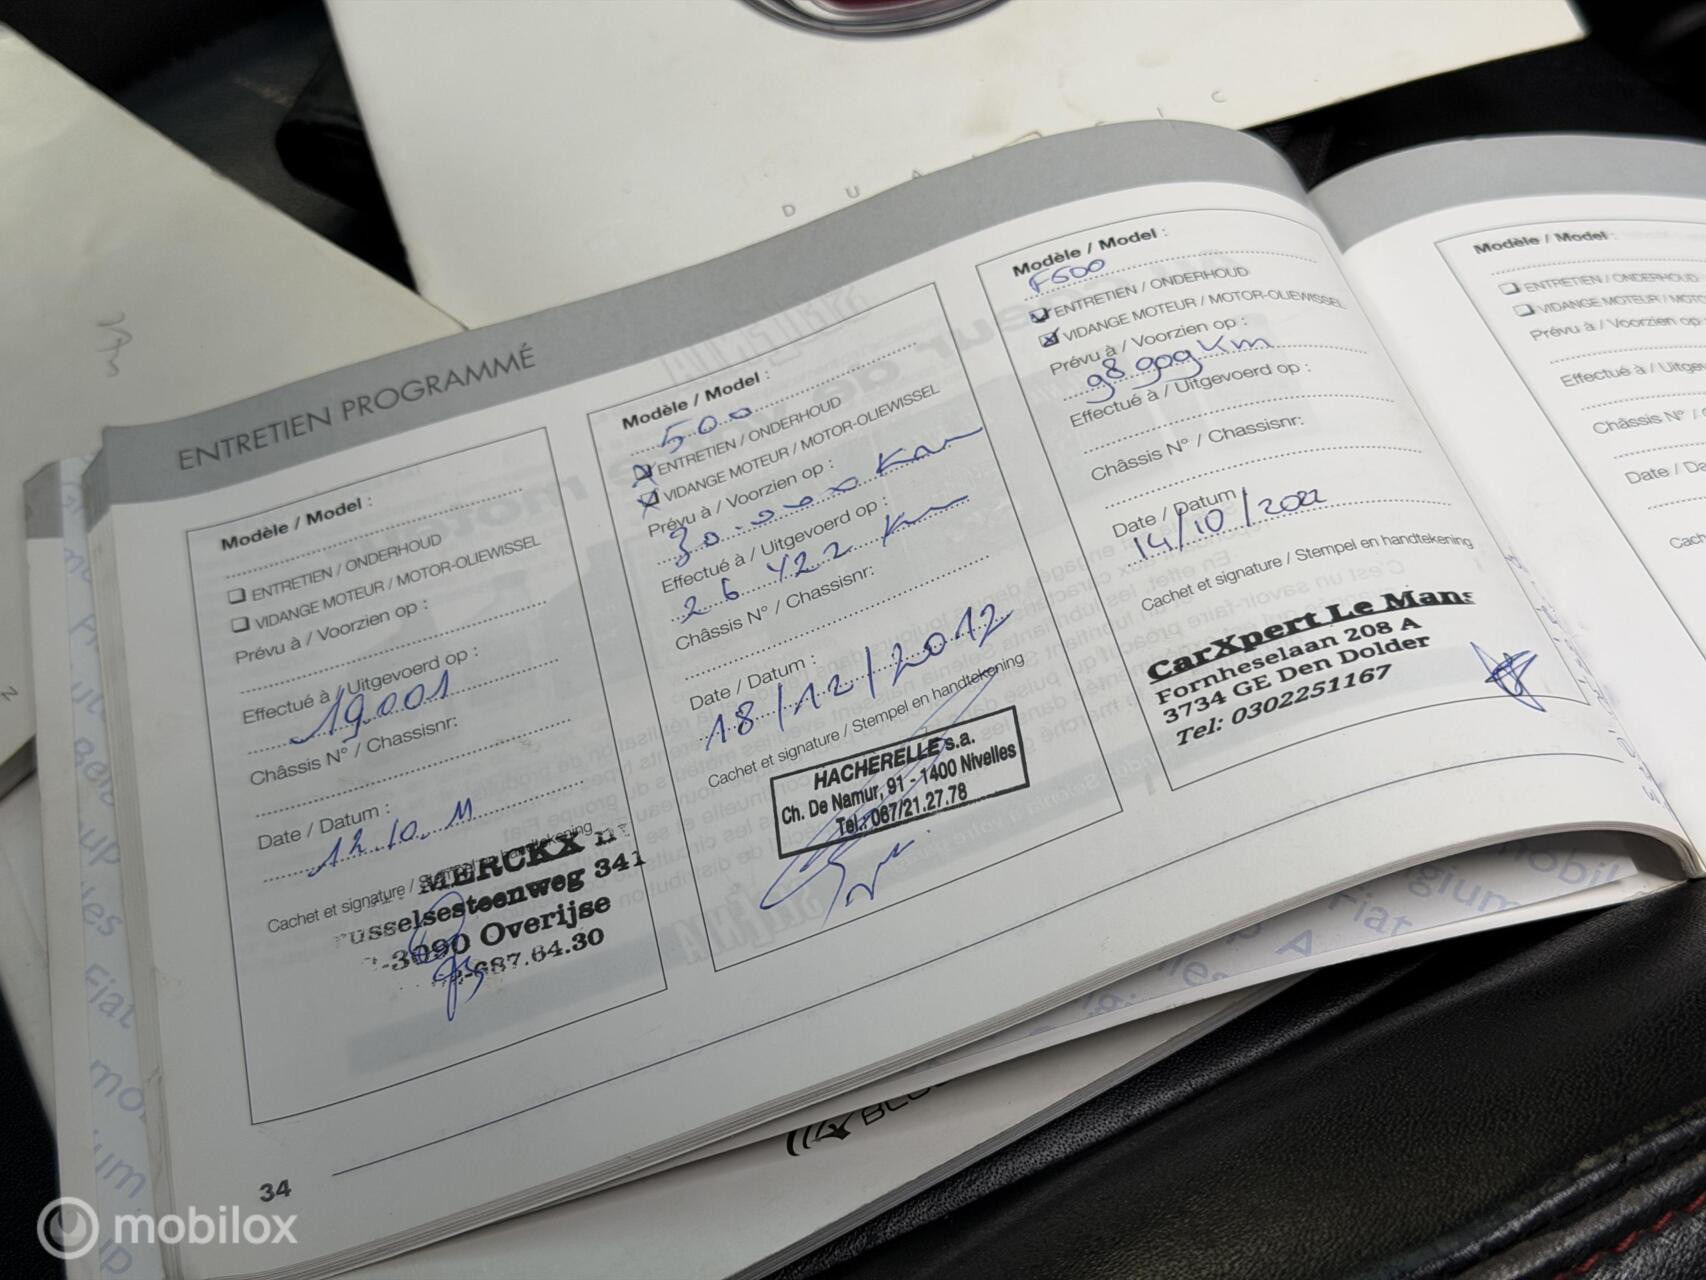 D U A L
I C
ENTRETIEN PROGRAMMÉ
Modèle / Model :
ENTRETIEN / ONDERHOUD
VIDANGE MOTEUR / MOTOR-OLIEWISSEL
Prévu à / Voorzien op :
Effectué à / Uitgevoerd op :
19.001
Châssis N° / Chassisnr:
Date / Datum :
12.10.11
Cachet et signature / Stempel en handtekening
MERCKX
russelsesteenweg 341
-3090 Overijse
2-687.64.30
Modèle / Model :
500
ENTRETIEN / ONDERHOUD
VIDANGE MOTEUR / MOTOR-OLIEWISSEL
Prévu à / Voorzien op :
30.000 Km
Effectué à / Uitgevoerd op :
26 422 Km
Châssis N° / Chassisnr:
Date / Datum :
18/12/2012
Cachet et signature / Stempel en handtekening
HACHERELLE s.a.
Ch. De Namur, 91 - 1400 Nivelles
Tel.: 067/21.27.78
Modèle / Model :
F500
ENTRETIEN / ONDERHOUD
VIDANGE MOTEUR / MOTOR-OLIEWISSEL
Prévu à / Voorzien op :
98 909 Km
Effectué à / Uitgevoerd op :
Châssis N° / Chassisnr:
Date / Datum
14/10/2022
Cachet et signature / Stempel en handtekening
CarXpert Le Mans
Fornheselaan 208 A
3734 GE Den Dolder
Tel: 0302251167
Modèle / Model :
ENTRETIEN / ONDERHOUD
VIDANGE MOTEUR / MOTO
Prévu à / Voorzien op
Effectué à / Uitgev
Châssis N° /
Date / Da
Cach
34
mobilox